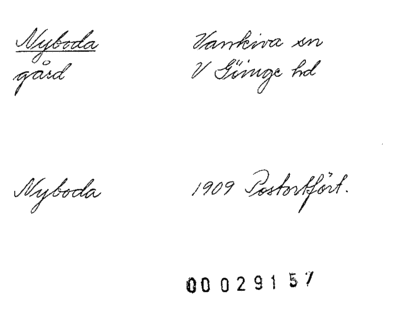 Nyboda Vankiva sn
gård V Göinge hd
Nyboda 1909 Postortfört.
00029157